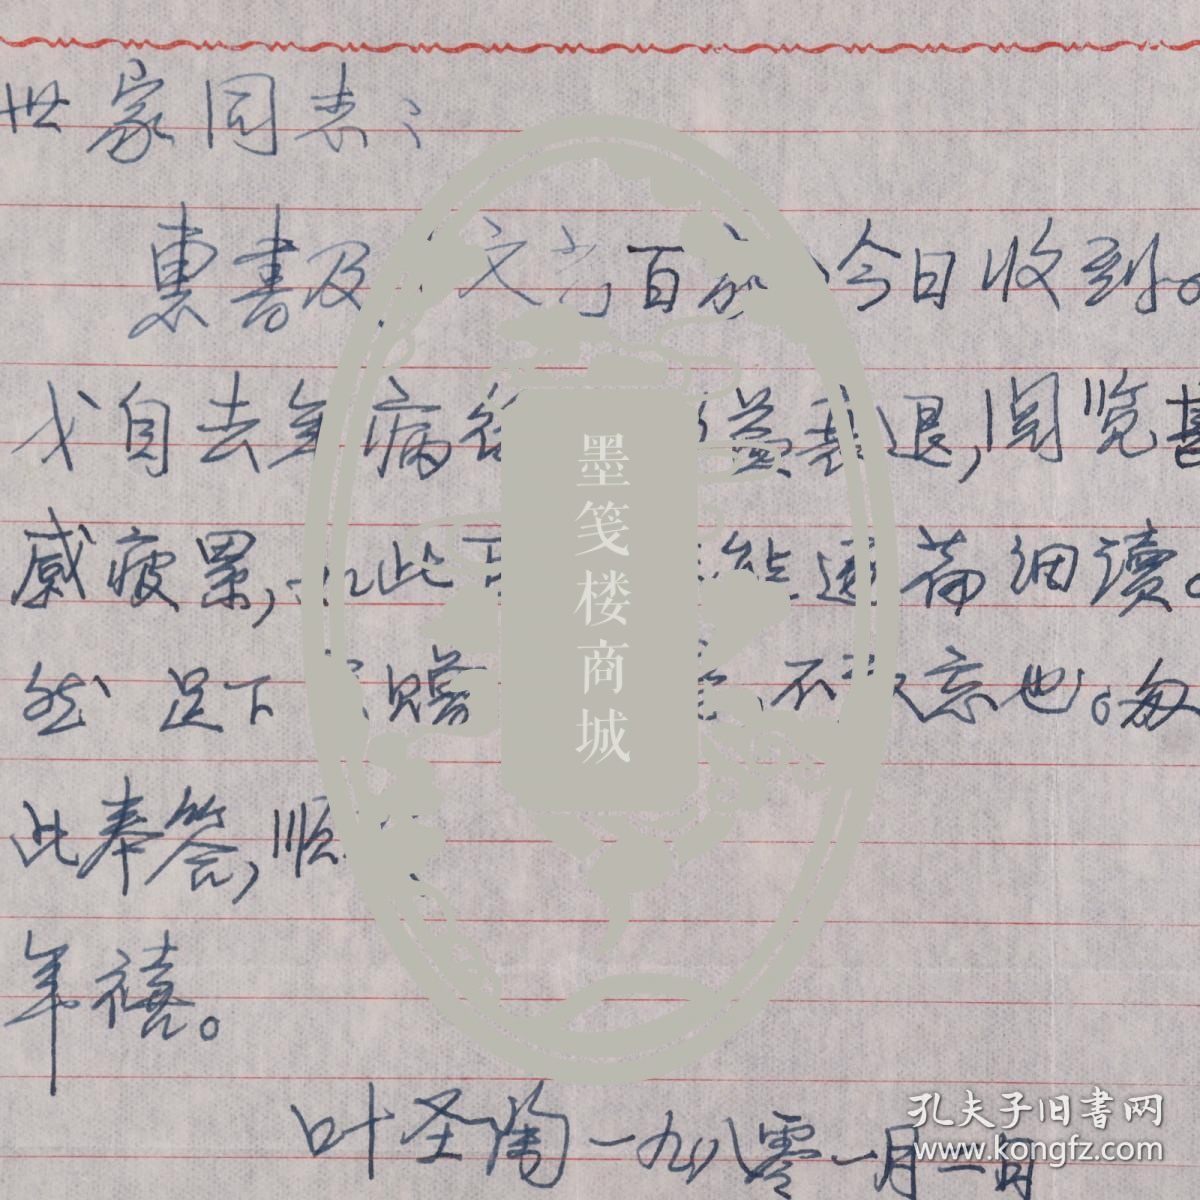 世家同志：
惠书及 文 百 今日收到。
我自去年病 益衰退，阅览甚
感疲累，如此 能逐篇细读。
然 足下 赐赠 不敢忘也。匆
此奉答，顺
年禧。
叶圣陶 一九八零一月二日
墨笺楼商城
孔夫子旧书网
www.kongfz.com